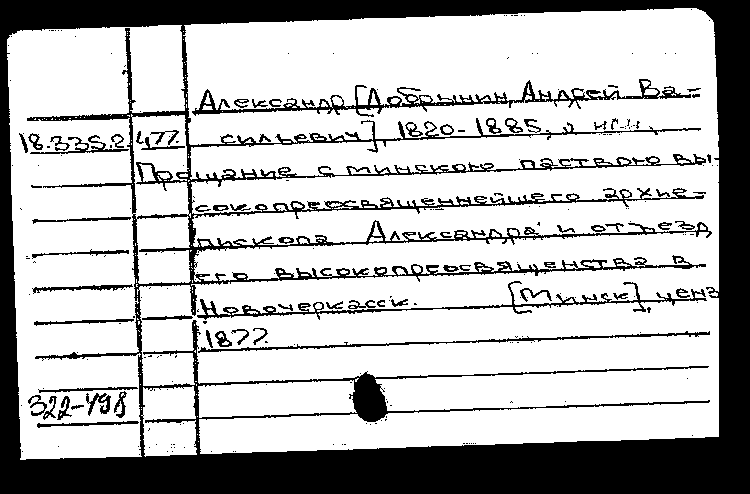 Александр [Добрынин, Андрей Ва-
18.335.2.477. сильевич], 1820-1885, о нем.
Прощание с минскою паствою вы-
сокопреосвященнейшего архие-
пископа Александра и отъезд
его высокопреосвященства в
Новочеркасск. [Минск], ценз.
1877.
322-498